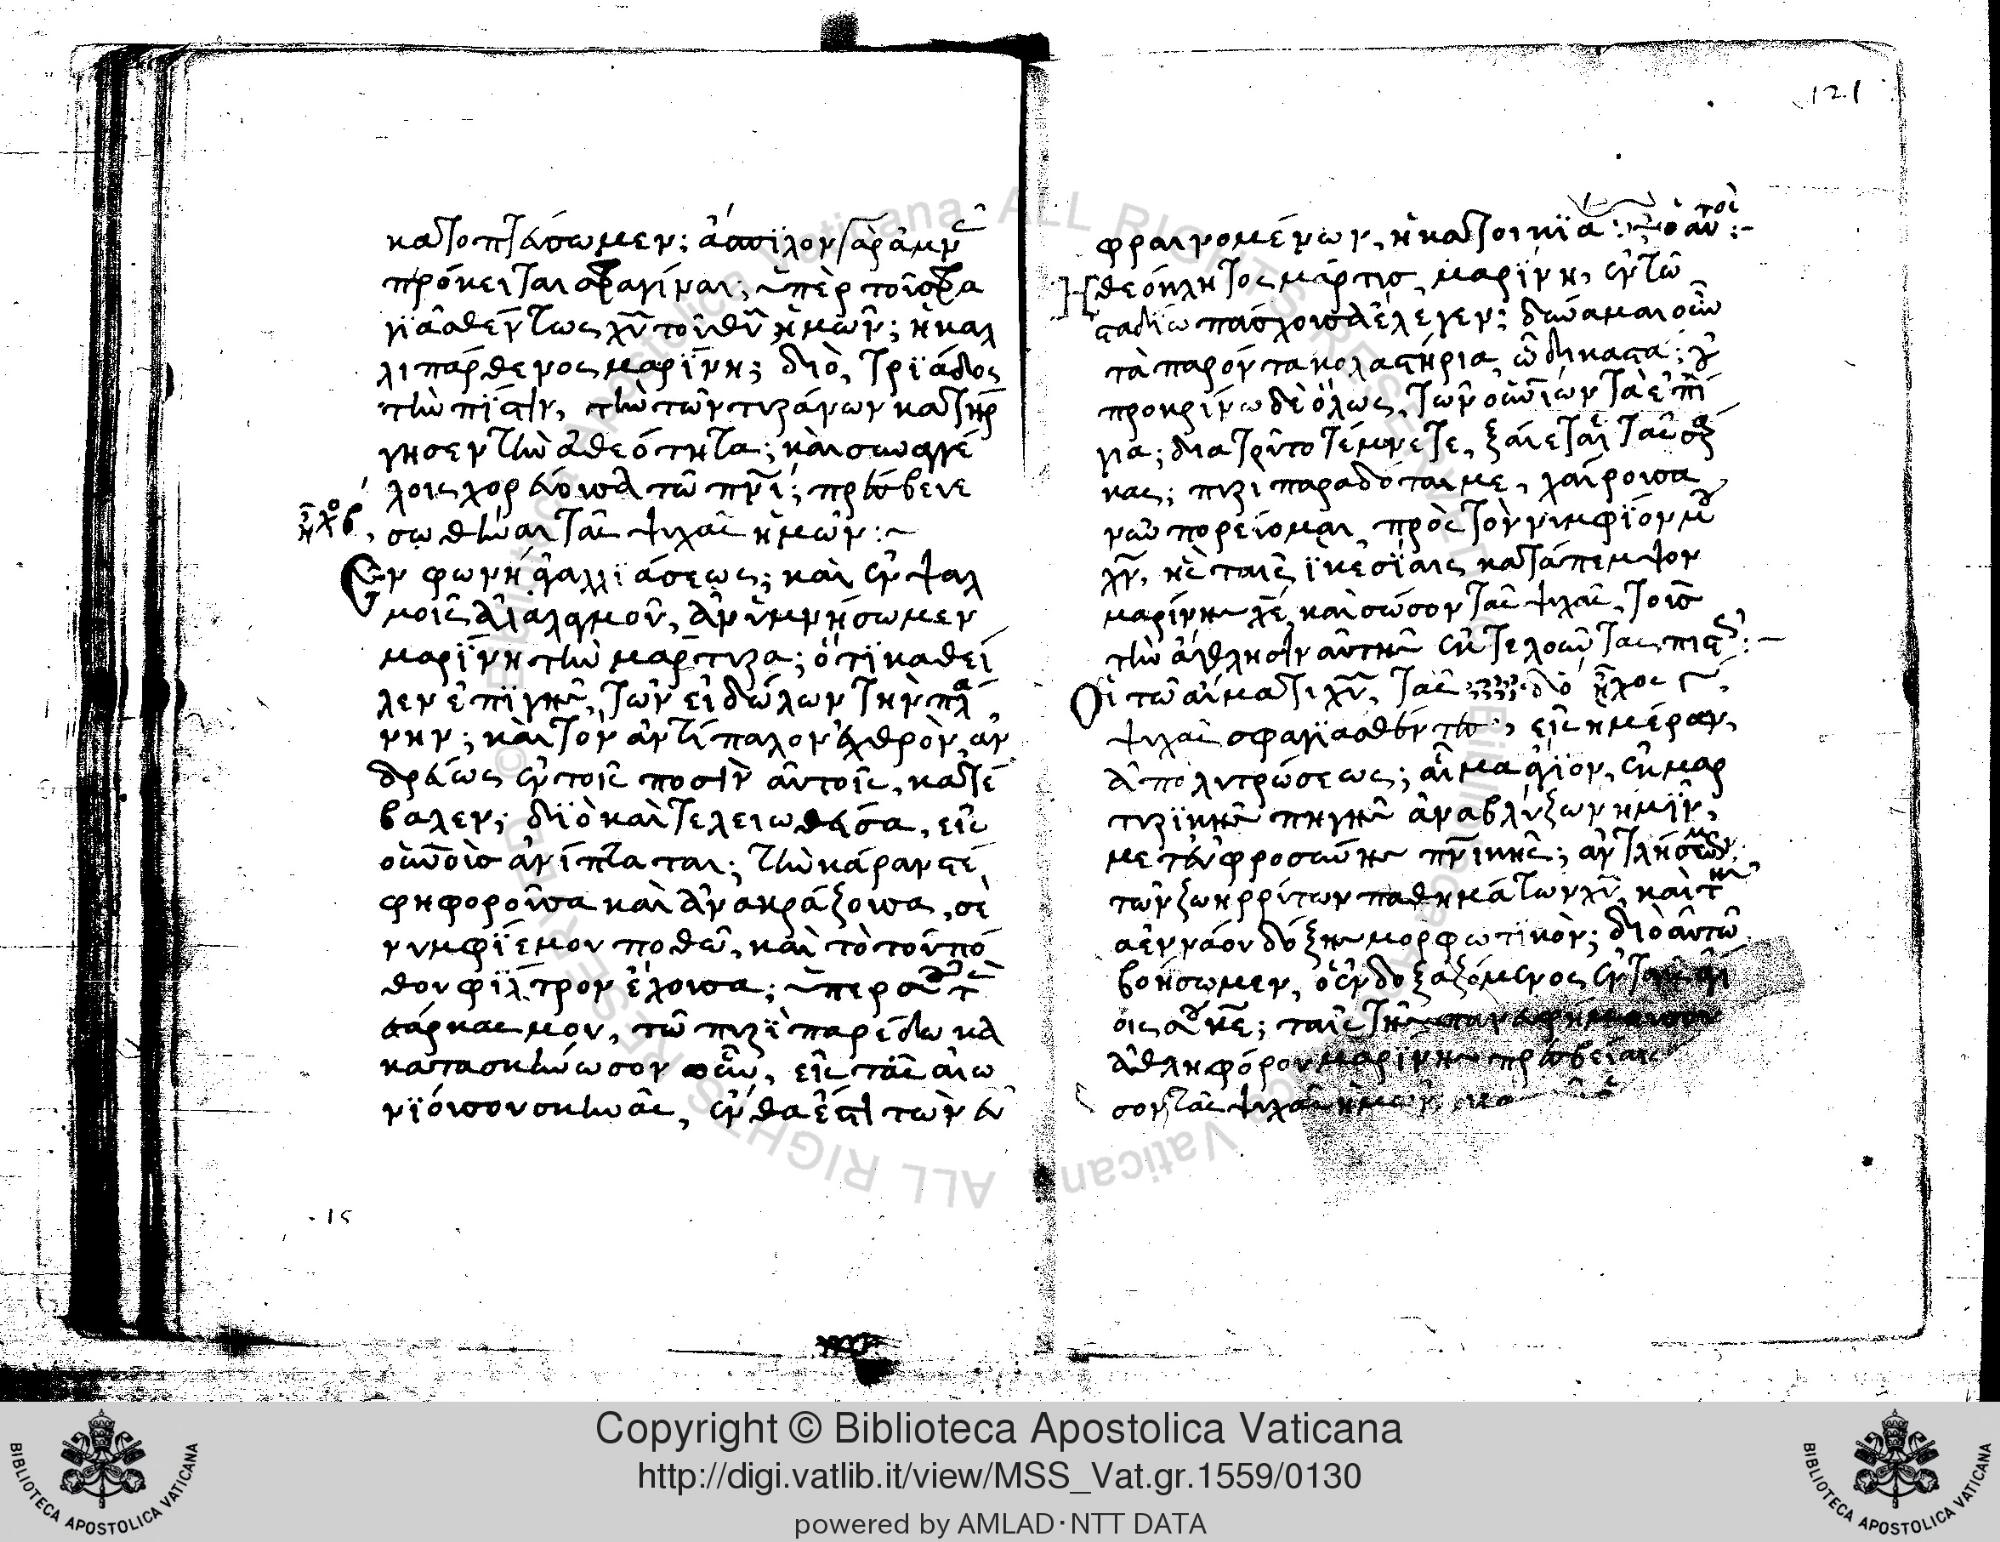 κατοπτεύσωμεν; ἄσπιλον γὰρ ἀμν
πρόκειται σφραγίναι; ὑπὲρ τοῦ σφα
γϊασθέντως χῡ τοῦ θῡ ἡμῶν; ἡ καλ
λιπάρθενος μαρϊνη; διὸ, τρϊάδος
τὴν πϊστιν, τὴν τῶν τυράνων κατήρ
γησεν τὴν ἀθεότητα; καὶ σὺν ἀγγέ
λοις χορεύουσα τῶ πρῑ; πρέσβευε
σωθῆναι τὰς ψυχὰς ἡμῶν:~
Εν φωνῆ ἀγαλλϊάσεως; καὶ ἐν ψαλ
μοῖς ἀλαλαγμοῦ, ἀνυμνήσωμεν
μαρϊνη τὴν μάρτυρα; ὅτϊ καθεῖ
λεν ἐπϊγῆς, τῶν εἰδώλων τὴν πλά
νην; καὶ τὸν ἀντίπαλον ἐχθρὸν, ἀν
δρείως ἐν τοῖς ποσὶν αὐτοῖς, κατέ
βαλεν; δϊὸ καὶ τελειωθεῖσα, εἰς
οὐνοὺς ἀνίπταται; τὴν κάραν στε
φηφοροῦσα καὶ ἀνακράζουσα, σὲ
νυμφϊέ μου ποθῶ, καὶ τὸ τοῦ πό
θου φίλτρον ἔχουσα; ὑπὲρ σοῦ τ
σάρκας μου, τῶ πυρὶ παρέδωκα
κατασκήνωσον οὖν, εἰς τὰς αἰω
νϊους σου σκηνὰς, ἔνθα ἐστὶ τῶν εὐ
121
φραινομένων, ἡ κατοικϊα:
θεόκλητος μάρτυς μαρϊνη, ἐν τῶ
σταδίω πάσχουσα ἔλεγεν; δύναμαι οὖν
τὰ παρόντα κολαστήρια, ὦ δικαστα;
προκρίνω δὲ ὅλως, τῶν οὐνίων τὰ ἐπί
για; διατοῦτο τέμνετε, ξάιεται τὰς σάρ
κας; πυρὶ παραδόταί με, χαίρουσα
νῦν πορεύομαι πρὸς τὸν νυμφϊον μου
χν̄, κὲ ταῖς ϊκεσϊαις κατάπεμψον
μαρίνης χε̄, καὶ σῶσον τὰς ψυχὰς, τοὺς
τὴν ἄθλησιν αὐτῆς ἐκτελοῦντας πισ:~
Οἱ τῶ αἵματι χῡ, τὰς ἦχος
ψυχὰς σφαγϊασθέντες, εἰς ἡμέραν,
ἀπολυτρώσεως; αἷμα ἅγϊον, ἐκ μαρ
τυρικῆς πηγῆς ἀναβλύζων ἡμῖν,
μετ εὐφροσύνης πνϊκῆς; ἀντλήσωμεν
τῶν ζωηρρύτων παθημάτων χῡ, καὶ τὴν
ἀένναον δόξης μορφωτικὸν; διὸ αὐτῶ
βοήσωμεν, ὁ ἐνδοξαζόμενος ἐν τοῖς ἁγί
οις σου κε̄; ταῖς τῆς πανευφήμου σου
ἀθληφόρου μαρϊνης πρεσβείαις
σον τὰς ψυχὰς ἡμῶν
15
Copyright © Biblioteca Apostolica Vaticana
http://digi.vatlib.it/view/MSS_Vat.gr.1559/0130
powered by AMLAD·NTT DATA
BIBLIOTECA APOSTOLICA VATICANA
BIBLIOTECA APOSTOLICA VATICANA